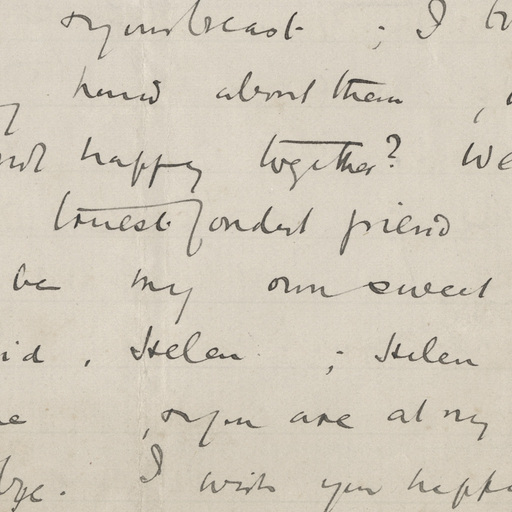 & your breast ; I
hand about them ,
happy together? We
truest fondest friend
be my own sweet
Helen ; Helen
, & you are at my
bye. I wish you happ